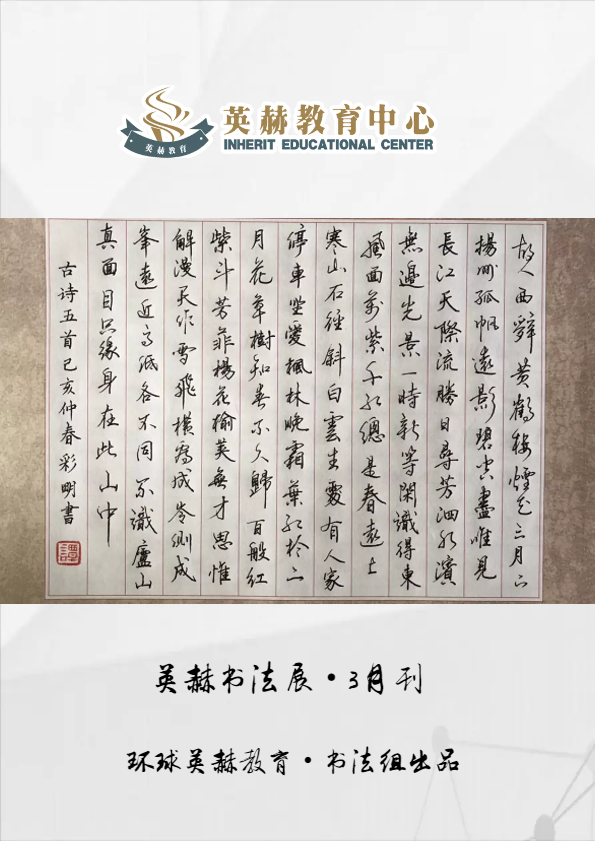 英赫教育
英赫教育中心
INHERIT EDUCATIONAL CENTER
故人西辭黄鶴樓煙花三月下
揚州孤帆遠影碧空盡唯見
長江天際流勝日尋芳泗水濱
無邊光景一時新等閑識得東
風面萬紫千红總是春遠上
寒山石徑斜白雲生處有人家
停車坐愛楓林晚霜葉红於二
月花草樹知春不久歸百般红
紫斗芳菲楊花榆荚無才思惟
解漫天作雪飛横看成岭側成
峯遠近高低各不同不識廬山
真面目只缘身在此山中
古诗五首己亥仲春彩明書
英赫书法展·3月刊
环球英赫教育·书法组出品